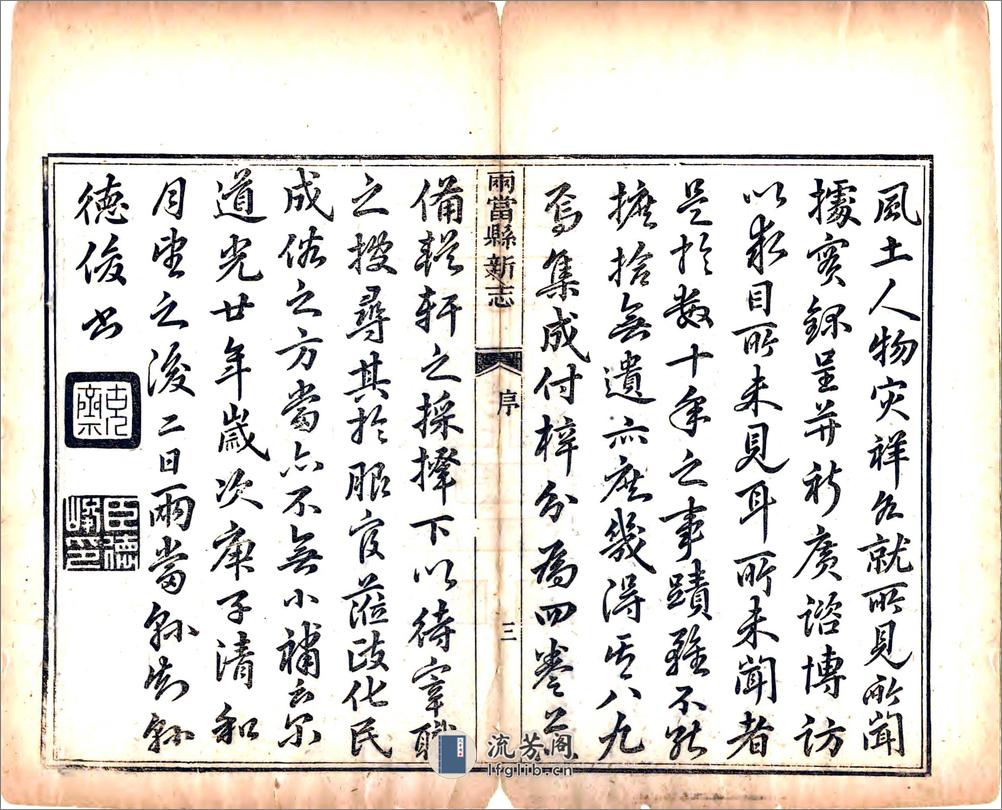 風土人物灾祥各就所見所聞
據實錄呈并祈廣諮博訪
以目所未見耳所未聞者
是於數十年之事蹟雖不能
摭拾無遺亦庶幾得其八九
焉集成付梓分為四卷上以
兩當縣新志
序
三
備輶軒之採擇下以待宰職
之搜尋其於服官蒞政化民
成俗之方當亦不無小補云尔
道光廿年歲次庚子清和
月望之後二日兩當縣知縣
德俊書
克齋
臣德峻印
流芳阁
lfglib.cn